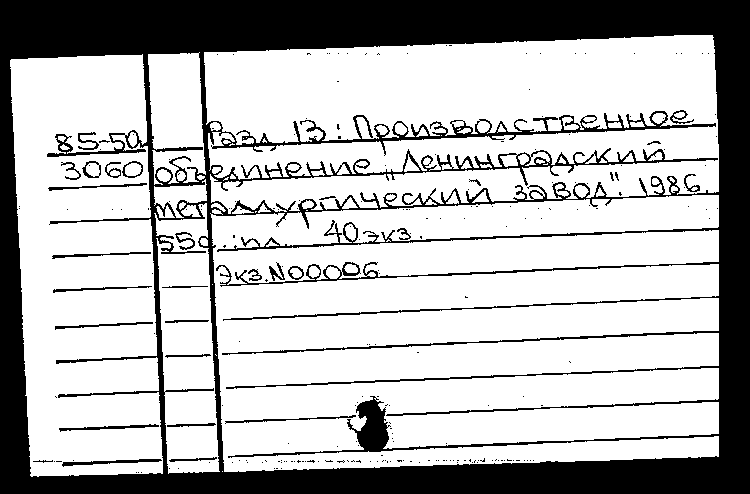 85-50 Разд. 13: Производственное
3060 объединение „Ленинградский
металлургический завод". 1986.
55с.: пл. 40 экз.
Экз.N00006